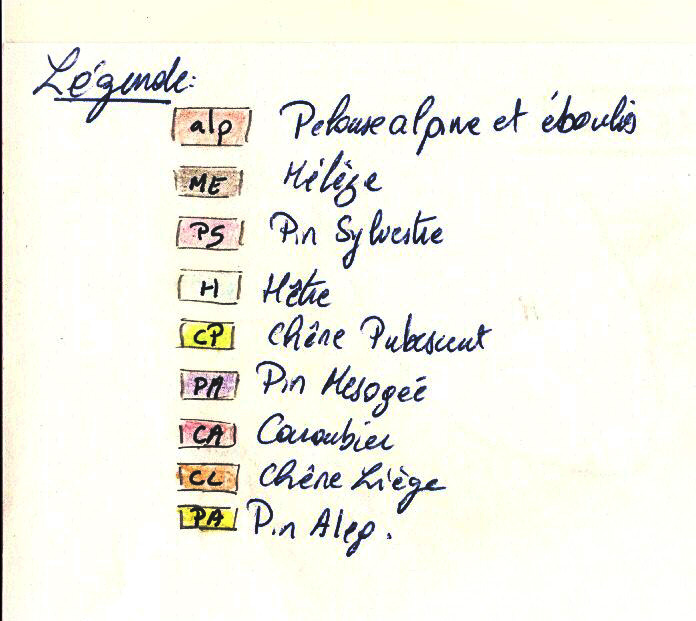 Légende:
alp Pelouse alpine et éboulis
ME Mélèze
PS Pin Sylvestre
H Hêtre
CP Chêne Pubescent
PM Pin Mesogée
CA Caroubier
CL Chêne Liège
PA Pin Alep.